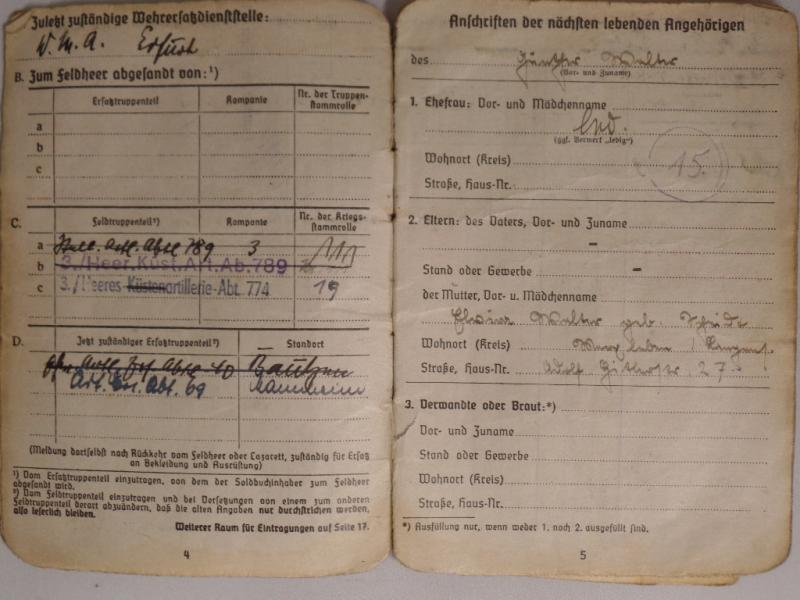 Zuletzt zuständige Wehrersatzdienststelle:
W.M.A. Erfurt
B. Zum Feldheer abgesandt von:¹)
Ersatztruppenteil Kompanie Nr. der Truppen-
stammrolle
a
b
c
C. Feldtruppenteil²) Kompanie Nr. der Kriegs-
stammrolle
a Art. Abtl 789 3
b 3./Heer.Küst.Art.Ab.789
c 3./Heeres Küstenartillerie-Abt. 774 19
D. Jetzt zuständiger Ersatztruppenteil²) Standort
Abtl. Bautzen
Art. Abt. 69 Mannheim
(Meldung dortselbst nach Rückkehr vom Feldheer oder Lazarett, zuständig für Ersatz
an Bekleidung und Ausrüstung)
¹) Vom Ersatztruppenteil einzutragen, von dem der Soldbuchinhaber zum Feldheer
abgesandt wird.
²) Vom Feldtruppenteil einzutragen und bei Versetzungen von einem zum anderen
Feldtruppenteil derart abzuändern, daß die alten Angaben nur durchstrichen werden,
also leserlich bleiben.
Weiterer Raum für Eintragungen auf Seite 17.
4
Anschriften der nächsten lebenden Angehörigen
des Günther Walter
(Vor- und Zuname)
1. Ehefrau: Vor- und Mädchenname
led.
(ggf. Vermerk „ledig“)
Wohnort (Kreis)
15.
Straße, Haus-Nr.
2. Eltern: des Vaters, Vor- und Zuname
–
Stand oder Gewerbe –
der Mutter, Vor- u. Mädchenname
Walter geb.
Wohnort (Kreis)
Straße, Haus-Nr. Adolf Hitlerstr 27
3. Verwandte oder Braut:*)
Vor- und Zuname
Stand oder Gewerbe
Wohnort (Kreis)
Straße, Haus-Nr.
*) Ausfüllung nur, wenn weder 1. noch 2. ausgefüllt sind.
5